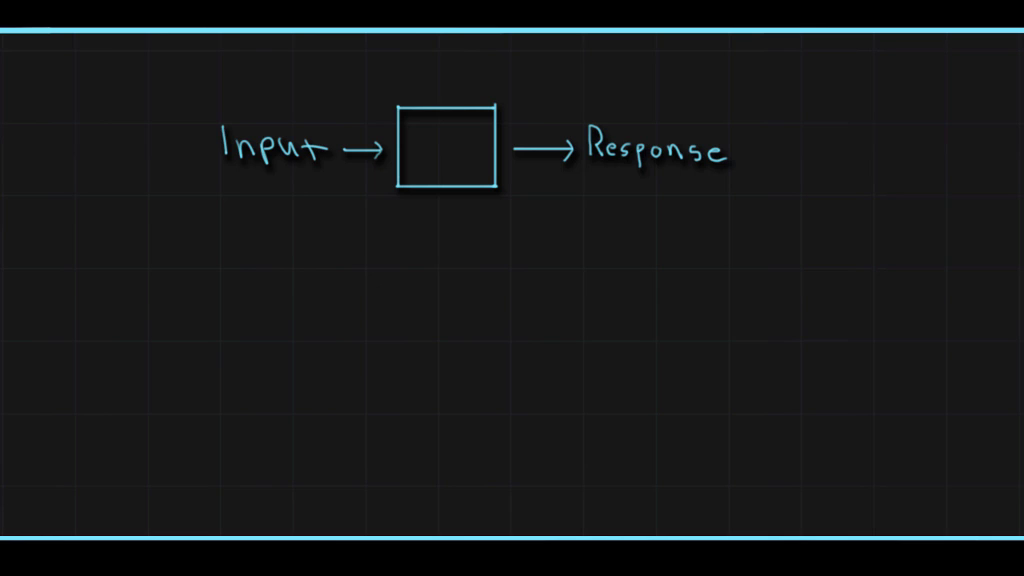 Input → □ → Response